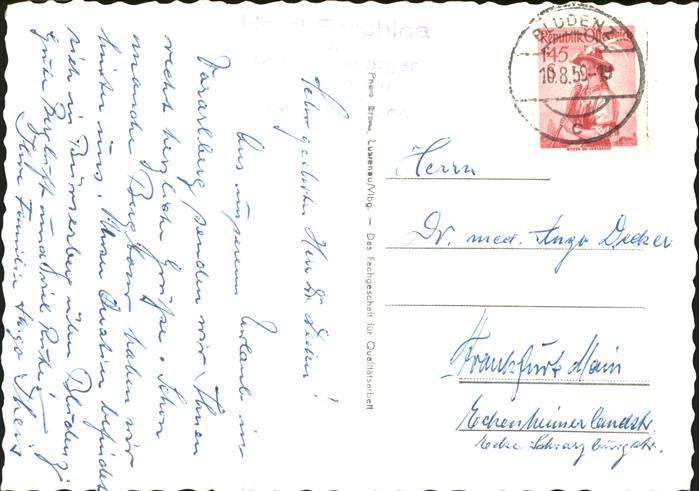 Sehr geehrter Herr Dr. Decker!
Aus unserem Urlaub in
Vorarlberg senden wir Ihnen
recht herzliche Grüße. Schon
manche Bergtour haben wir
hinter uns. Unser Quartier befindet
sich in Bürserberg über Bludenz,
gute Bergluft und viel Ruhe!
Ihre Familie Hugo Theis
Photo Risch, Lustenau/Vlbg. — Das Fachgeschäft für Qualitätsarbeit
BLUDENZ
10.8.59-15
c
Republik Österreich
1.45
S
Herrn
Dr. med. Hugo Decker
Frankfurt Main
Eckenheimerlandstr.
Ecke Schwarzburgstr.